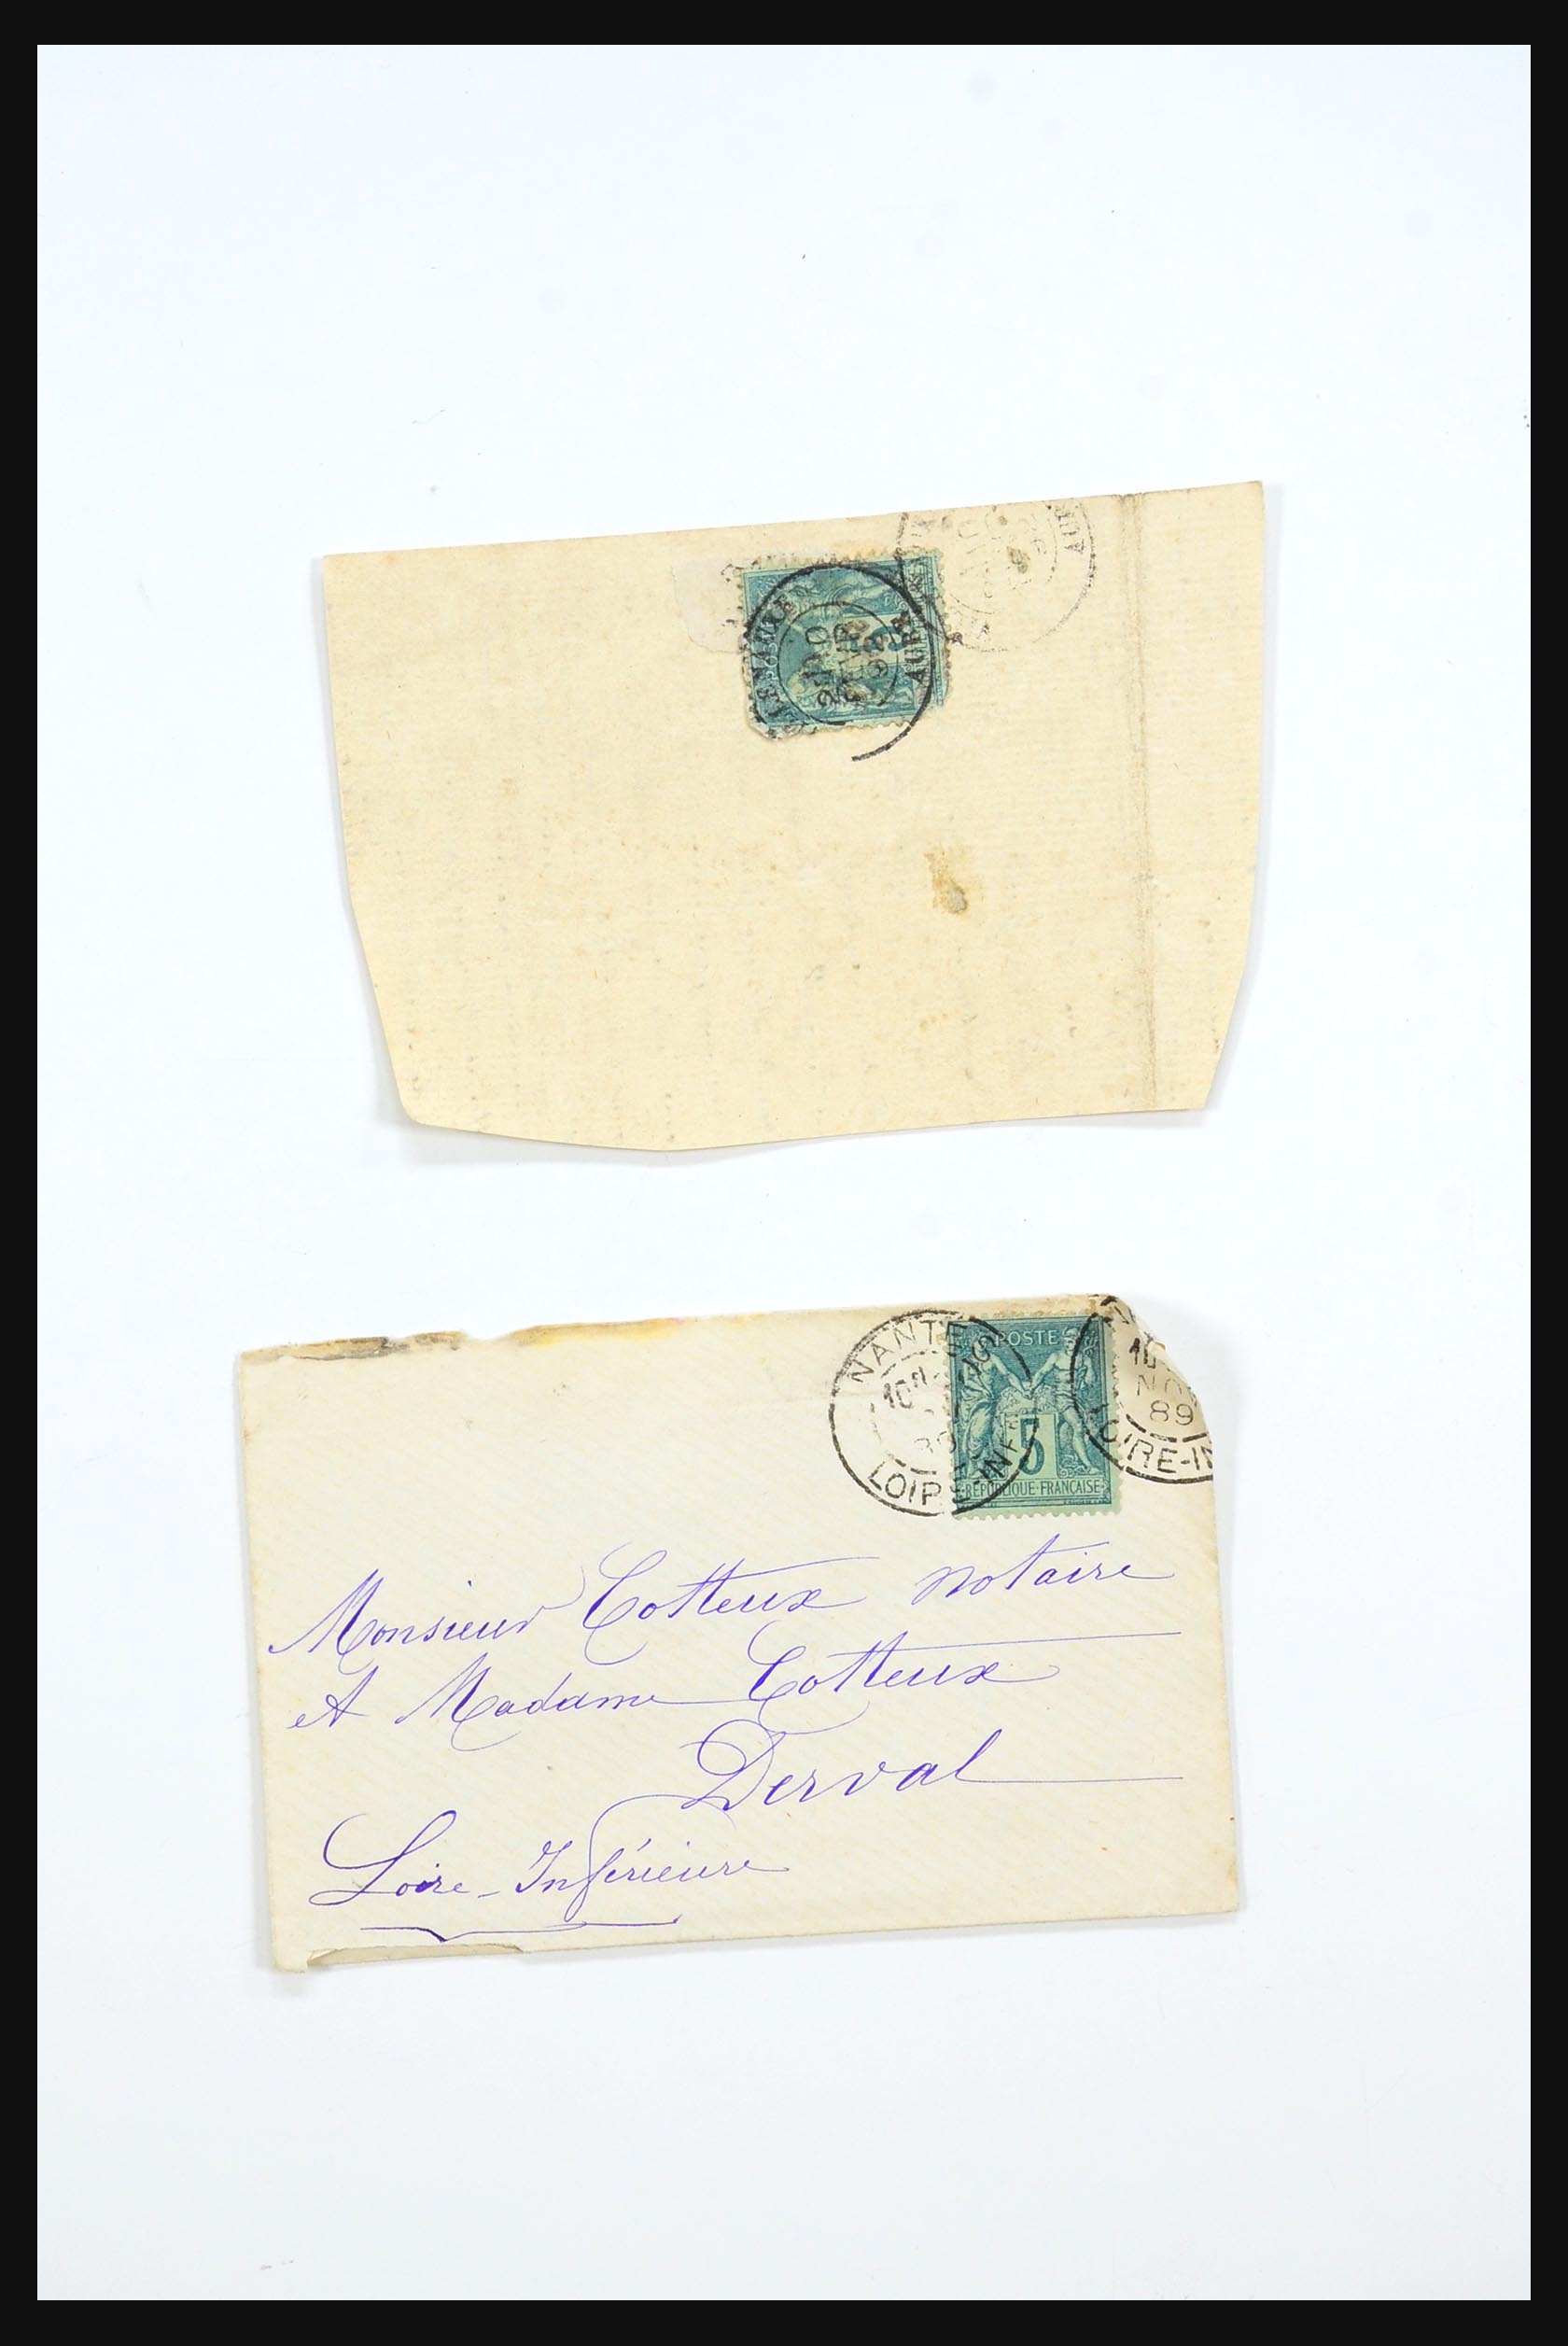 AUBE
POSTE
5
RÉPUBLIQUE FRANÇAISE
NANTES
10
LOIRE-INFRE
10
NOV
89
LOIRE-IN
Monsieur Cotteux notaire
et Madame Cotteux
Derval
Loire-Inférieure